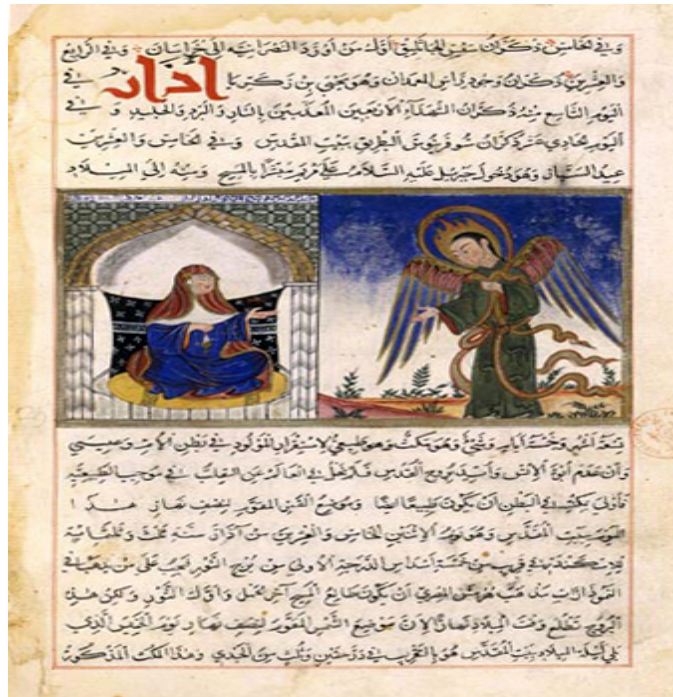 وفي الخامس ذكران الجاثليق اول من اورد النصرانية الى خراسان وفي الرابع
والعشرين ذكران وجود راس المعمدان وهو يحيى بن زكريا اذار في
اليوم التاسع منه ذكران الشهداء الاربعين المعذبين بالنار والبرد والجليد وفي
اليوم الحادي عشر ذكران سوفرنيوس البطريق ببيت المقدس وفي الخامس والعشرين
عيد السبار وهو دخول جبريل عليه السلام على مريم مبشرا بالمسيح ومنه الى الميلاد
تسعة اشهر وخمسة ايام وشيء وهو مكث وهو طبيعي لاستقرار المولود في بطن الام وعيسى
وان عدم ابوة الانس وايد بروح القدس فلم يخل في العالم عن التقلب في موجب الطبيعة
فاولى بمكثه في البطن ان يكون طبيعيا ايضا وموضع القمر المقوم لنصف نهار هذا
اليوم ببيت المقدس وهو يوم الاثنين الخامس والعشرين من آذار سنة ثلث وثلثماية
للاسكندر في قريب من خمسة اسداس الدرجة الاولى من برج الثور فيجب على من يذهب في
النموذارات مذهب هرمس المصري ان يكون طالع المسيح آخر الحمل واوائل الثور ولكن هذه
البروج تطلع وقت الميلاد نهارا لان موضع الشمس المقوم لنصف نهار يوم الخميس الذي
يلي ليلة الميلاد ببيت المقدس هو بالتقريب في درجتين وثلث من الجدي وهذا المكث المذكور